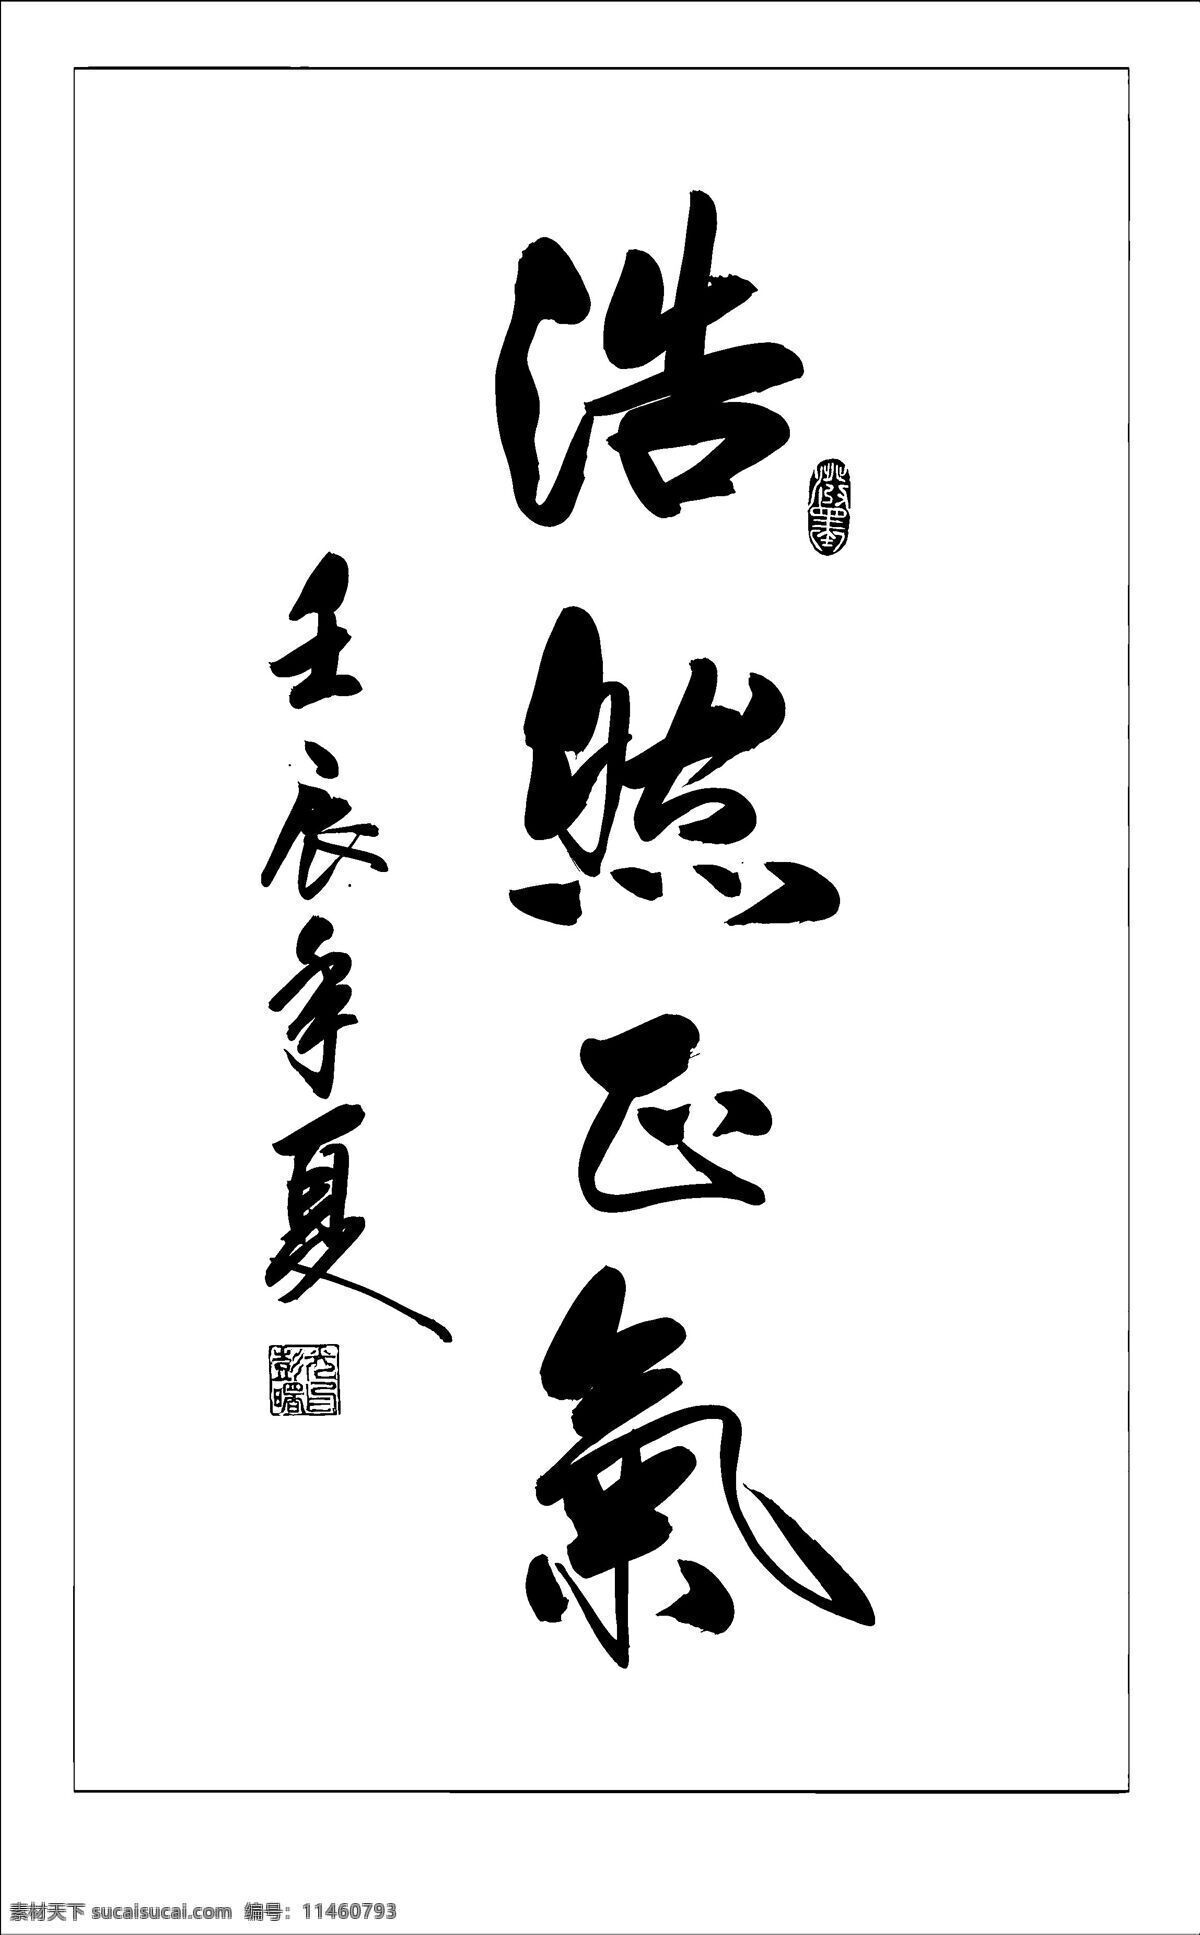 浩然正氣
壬辰年夏
素材天下 sucaisucai.com 编号：11460793